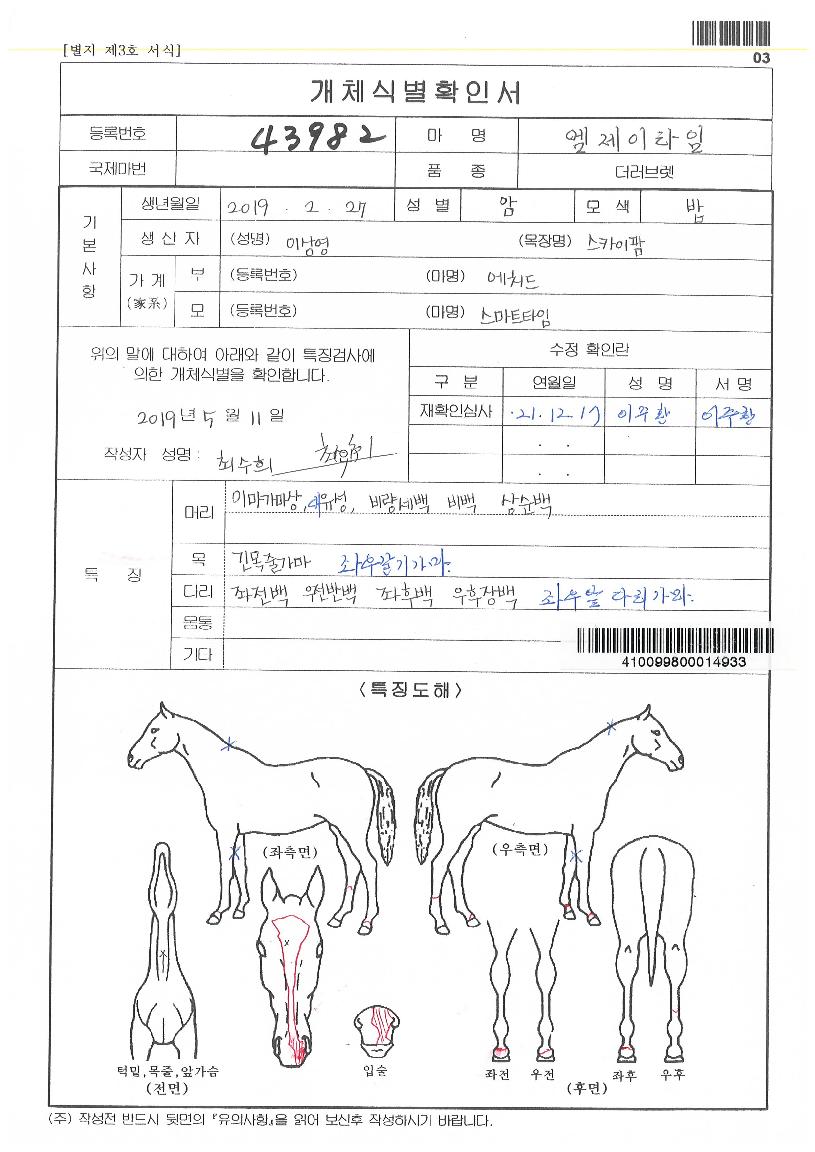 [별지 제3호 서식]
03
개체식별확인서
등록번호 43982 마 명 엠제이타임
국제마번 품 종 더러브렛
기본사항
생년월일 2019 . 2 . 27 성 별 암 모 색 밤
생 산 자 (성명) 이삼영 (목장명) 스카이팜
가 계 (家系)
부 (등록번호) (마명) 에처드
모 (등록번호) (마명) 스마트타임
위의 말에 대하여 아래와 같이 특징검사에
의한 개체식별을 확인합니다.
2019년 5 월 11 일
작성자 성명 : 최수희
수정 확인란
구 분 연월일 성 명 서 명
재확인심사 '21. 12. 17 이주환 이주환
. .
. .
특 징
머리 이마가마상, 대유성, 비량세백 비백 상순백
목 긴목줄가마 좌우갈기가마.
다리 좌전백 우전반백 좌후백 우후장백 좌우앞다리가마.
몸통
기다
410099800014933
<특징도해>
(좌측면) (우측면)
턱밑,목줄,앞가슴
(전면)
입술
좌전 우전
(후면)
좌후 우후
(주) 작성전 반드시 뒷면의 『유의사항』을 읽어 보신후 작성하시기 바랍니다.